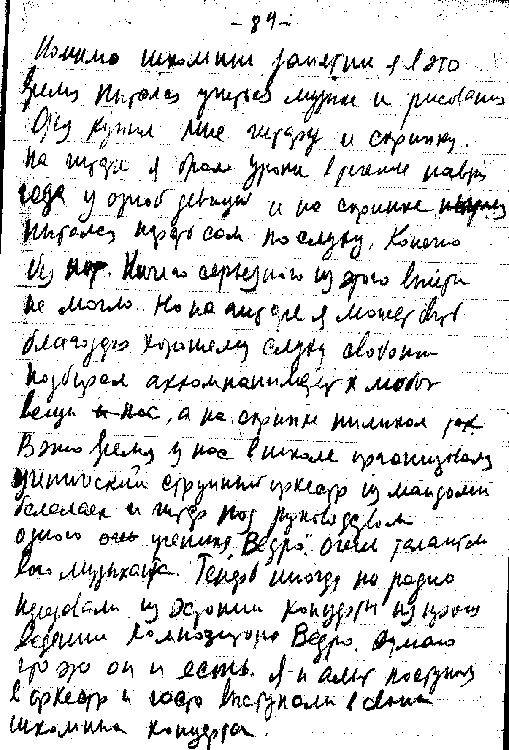 - 84 -
Помимо школьных занятий я в это
время пытался учиться музыке и рисованию
Отец купил мне гитару и скрипку.
На гитаре я брал уроки в течение
года у одной девицы и на скрипке
пытался играть сам по слуху. Конечно
без нот. Ничего серьезного из этого выйти
не могло. Но на гитаре я может быть
благодаря хорошему слуху свободно
подбирал аккомпанимент к любой
вещи, а на скрипке пиликал так
В это время у нас в школе организовали
ученический струнный оркестр из мандолин
балалаек и гитар под руководством
одного ученика Ведро. очень талантли
вого музыканта. Теперь иногда по радио
передавали из Эстонии концерты из произ
ведений композитора Ведро. думаю
что это он и есть. Я и поступил
в оркестр и часто выступали в своих
школьных концертах.